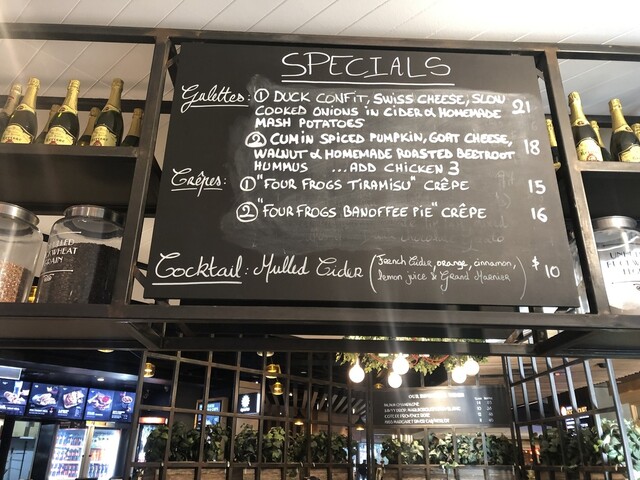 SPECIALS
Galettes: ① DUCK CONFIT, SWISS CHEESE, SLOW
COOKED ONIONS IN CIDER & HOMEMADE
MASH POTATOES
21
② CUMIN SPICED PUMPKIN, GOAT CHEESE,
WALNUT & HOMEMADE ROASTED BEETROOT
HUMMUS ...ADD CHICKEN 3
18
Crêpes: ① "FOUR FROGS TIRAMISU" CRÊPE 15
② "FOUR FROGS BANOFFEE PIE" CRÊPE 16
Cocktail: Mulled Cider (French Cider, orange, cinnamon,
lemon juice & Grand Marnier) $10
WHEAT
OUR